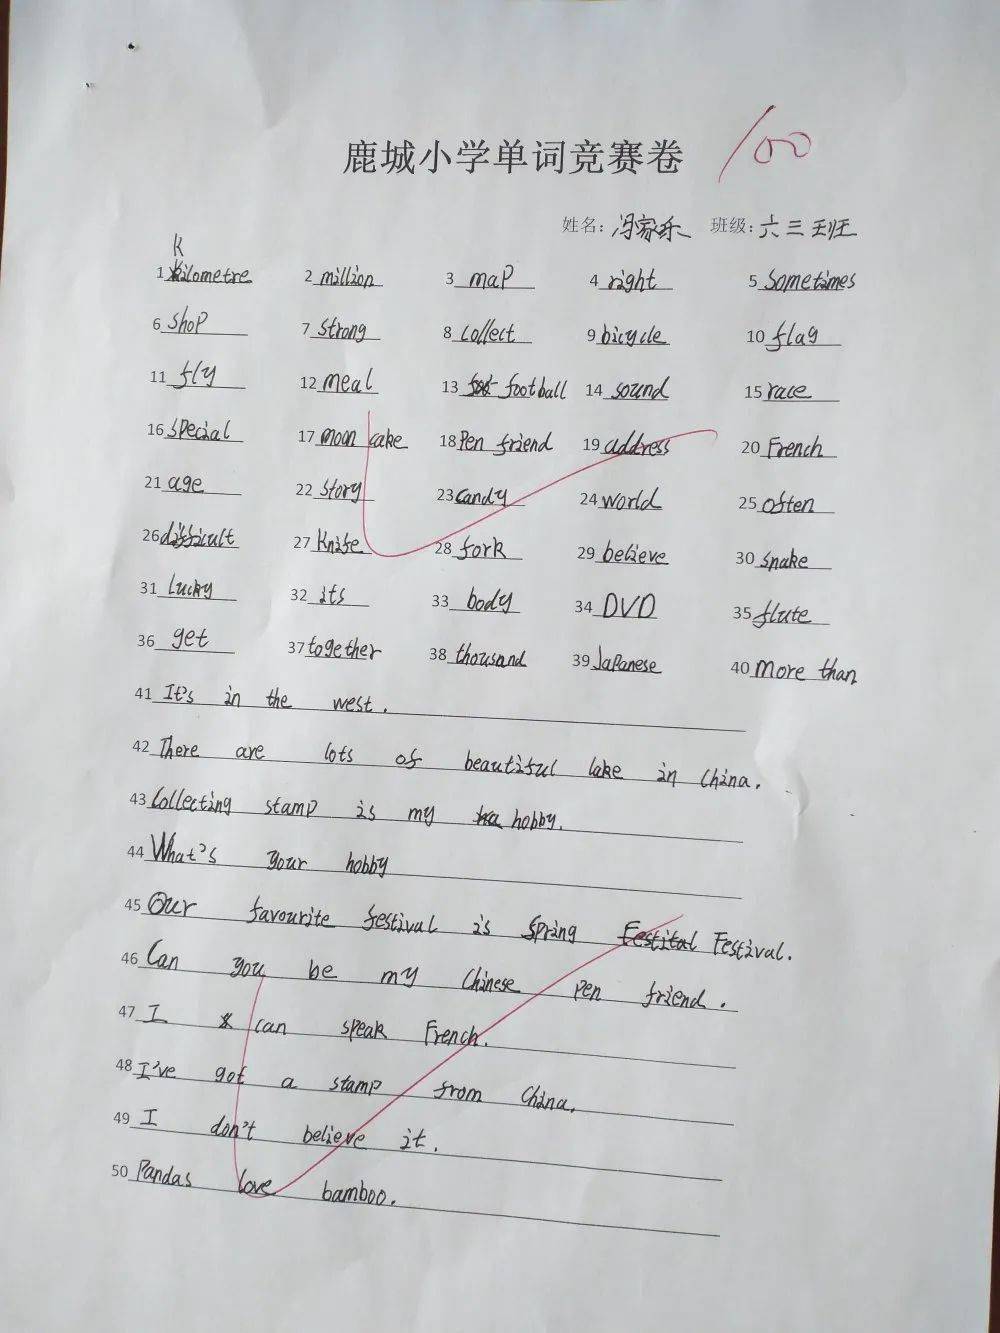 100
鹿城小学单词竞赛卷
姓名：冯家乐 班级：六三班
K
1 kilometre 2 million 3 map 4 right 5 sometimes
6 shop 7 strong 8 collect 9 bicycle 10 flag
11 fly 12 meal 13 football 14 sound 15 race
16 special 17 moon cake 18 Pen friend 19 address 20 French
21 age 22 story 23 candy 24 world 25 often
26 difficult 27 knife 28 fork 29 believe 30 snake
31 lucky 32 its 33 body 34 DVD 35 flute
36 get 37 together 38 thousand 39 Japanese 40 more than
41 It's in the west.
42 There are lots of beautiful lake in China.
43 Collecting stamp is my hobby.
44 What's your hobby
45 Our favourite festival is Spring Festital Festival.
46 Can you be my Chinese pen friend.
47 I can speak French.
48 I've got a stamp from China.
49 I don't believe it.
50 Pandas love bamboo.